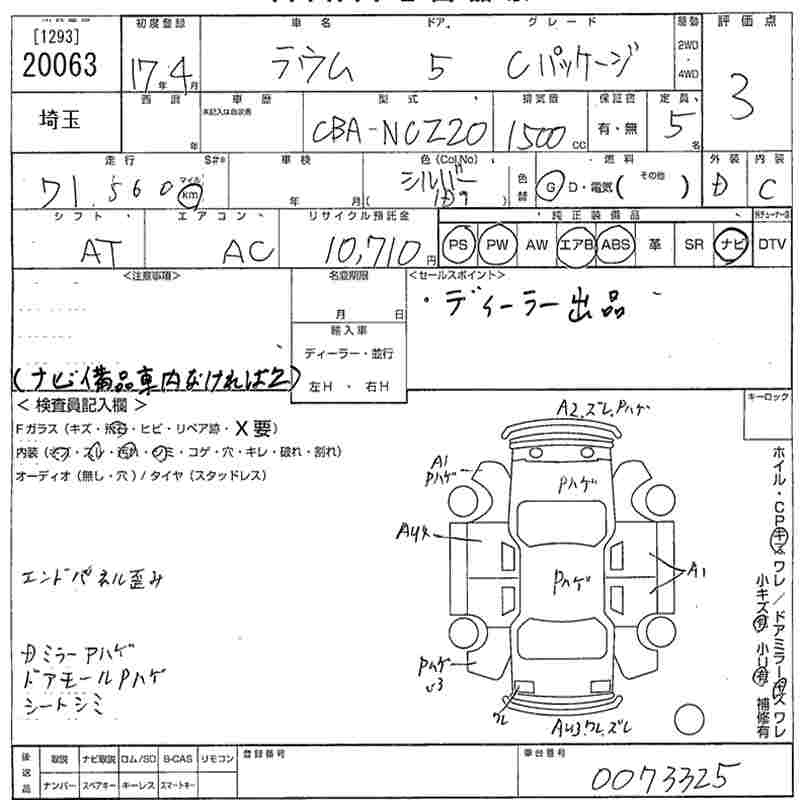 [1293]
20063
埼玉
初度登録 車名 ドア グレード 評価点
17年4月 ラウム 5 Cパッケージ 2WD・4WD 3
西暦 年 車歴 未記入は自家用 型式 排気量 保証書 定員
CBA-NCZ20 1500CC 有・無 5名
走行 S#* 車検 色(Col.No) 色替 燃料 外装 内装
71,560 マイル km 年 月 シルバー ( ) G D・電気( その他 ) D C
シフト エアコン リサイクル預託金 純正装備品
AT AC 10,710円 PS PW AW エアB ABS 革 SR ナビ DTV
<注意事項> 名変期限 <セールスポイント>
・ディーラー出品
月 日
輸入車
ディーラー・並行
左H・右H
(ナビ備品車内なければ乙)
キーロック
< 検査員記入欄 >
Fガラス(キズ・飛石・ヒビ・リペア跡・X要)
内装(キズ・スレ・汚れ・シミ・コゲ・穴・キレ・破れ・割れ)
オーディオ(無し・穴)/タイヤ(スタッドレス)
A2.ズレ.Pハゲ
A1
Pハゲ
Pハゲ
AU4
A1
Pハゲ
Pハゲ
U3
ワレ
AU3.ワレ.ズレ
ホイル・CPキズ ワレ/ドアミラーキズ ワレ
小キズ有 小U有 補修有
エンドパネル歪み
Dミラー Pハゲ
ドアモール Pハゲ
シートシミ
後送品 取説 ナビ取説 ロム/SD B-CAS リモコン 登録番号 車台番号
ナンバー スペアキー キーレス スマートキー 0073325